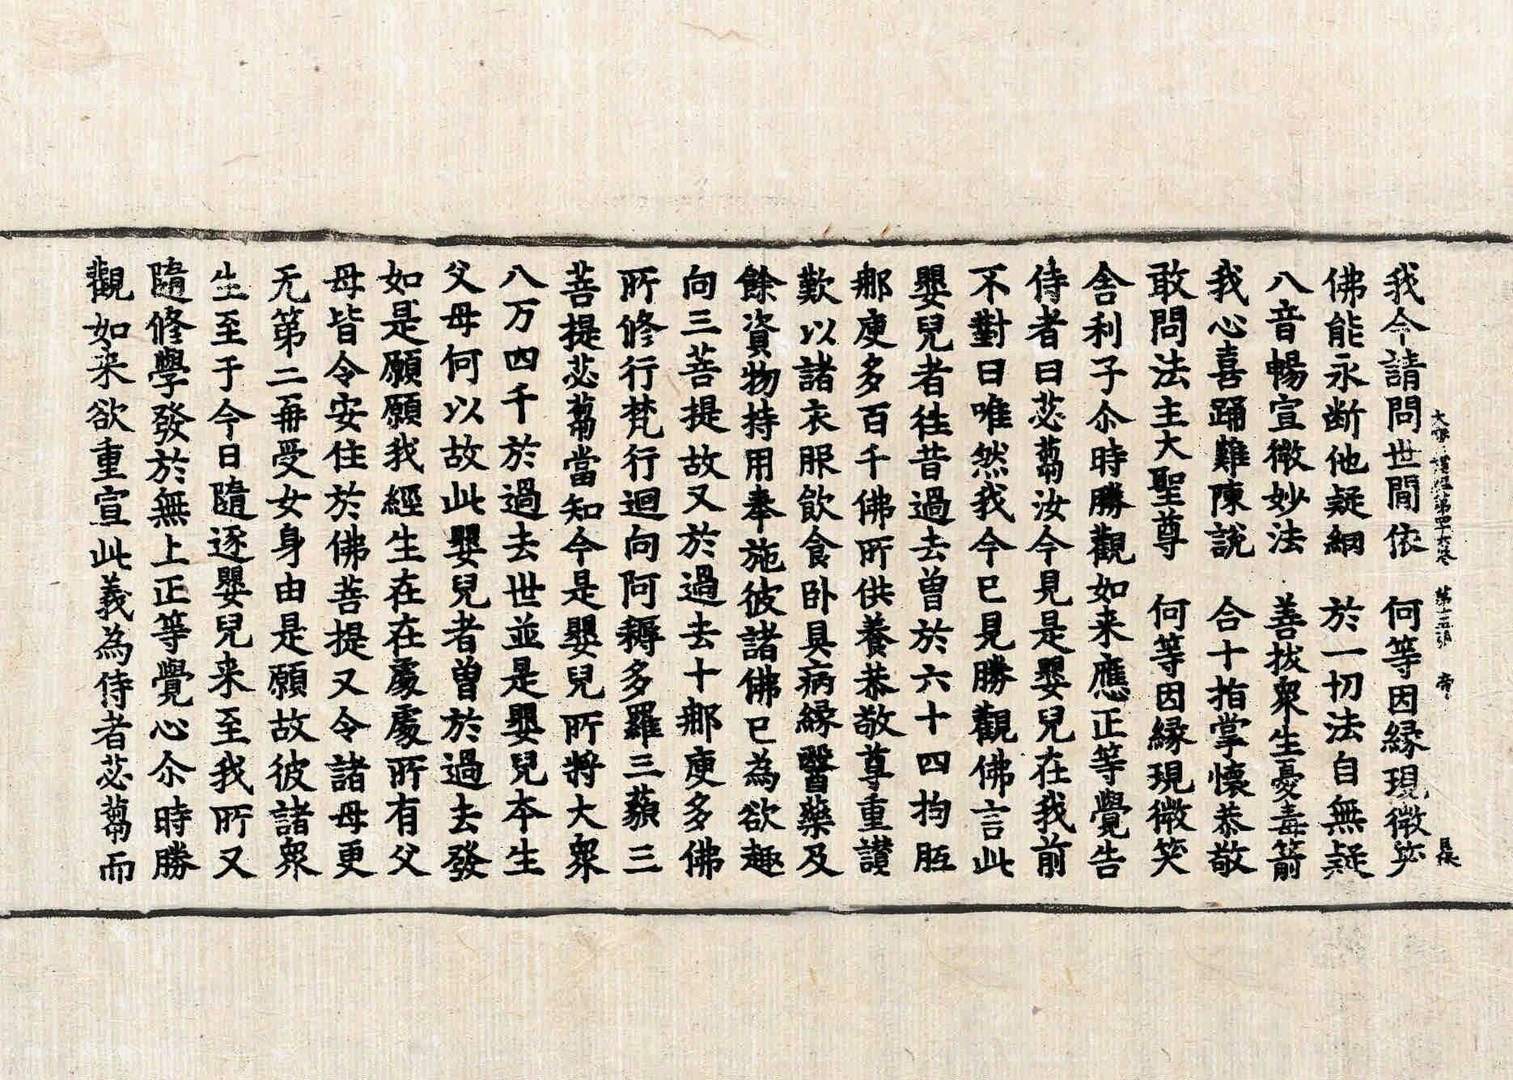 我今請問世閒依　何等因緣現微笑
大寶積經第四十六卷　第十三張　帝
佛能永断他疑網　於一切法自無疑
八音暢宣微妙法　善拔衆生憂毒箭
我心喜踊難陳說　合十指掌懷恭敬
敢問法主大聖尊　何等因緣現微笑
舎利子尒時勝觀如来應正等覺告
侍者曰苾蒭汝今見是嬰兒在我前
不對曰唯然我今已見勝觀佛言此
嬰兒者往昔過去曽於六十四拘胝
那庾多百千佛所供養恭敬尊重讃
歎以諸衣服飲食卧具病緣醫藥及
餘資物持用奉施彼諸佛已為欲趣
向三菩提故又於過去十那庾多佛
所修行梵行迴向阿耨多羅三藐三
菩提苾蒭當知今是嬰兒所將大衆
八万四千於過去世並是嬰兒本生
父母何以故此嬰兒者曽於過去發
如是願願我經生在在處處所有父
母皆令安住於佛菩提又令諸母更
无第二毎受女身由是願故彼諸衆
生至于今日隨逐嬰兒来至我所又
隨修學發於無上正等覺心尒時勝
觀如来欲重宣此義為侍者苾蒭而